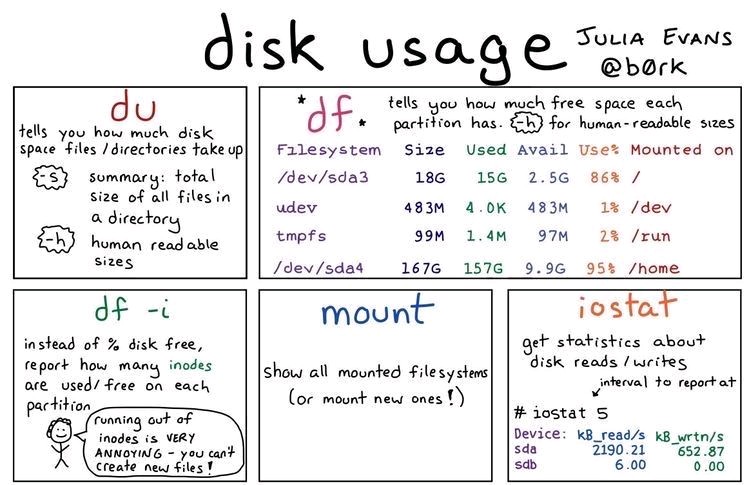 disk usage
JULIA EVANS
@b0rk
du
tells you how much disk
space files/directories take up
-s summary: total
size of all files in
a directory
-h human readable
sizes
*df*
tells you how much free space each
partition has. -h for human-readable sizes
Filesystem Size Used Avail Use% Mounted on
/dev/sda3 18G 15G 2.5G 86% /
udev 483M 4.0K 483M 1% /dev
tmpfs 99M 1.4M 97M 2% /run
/dev/sda4 167G 157G 9.9G 95% /home
df -i
instead of % disk free,
report how many inodes
are used/free on each
partition
running out of
inodes is VERY
ANNOYING - you can't
create new files!
mount
show all mounted filesystems
(or mount new ones!)
iostat
get statistics about
disk reads/writes
interval to report at
# iostat 5
Device: kB_read/s kB_wrtn/s
sda 2190.21 652.87
sdb 6.00 0.00